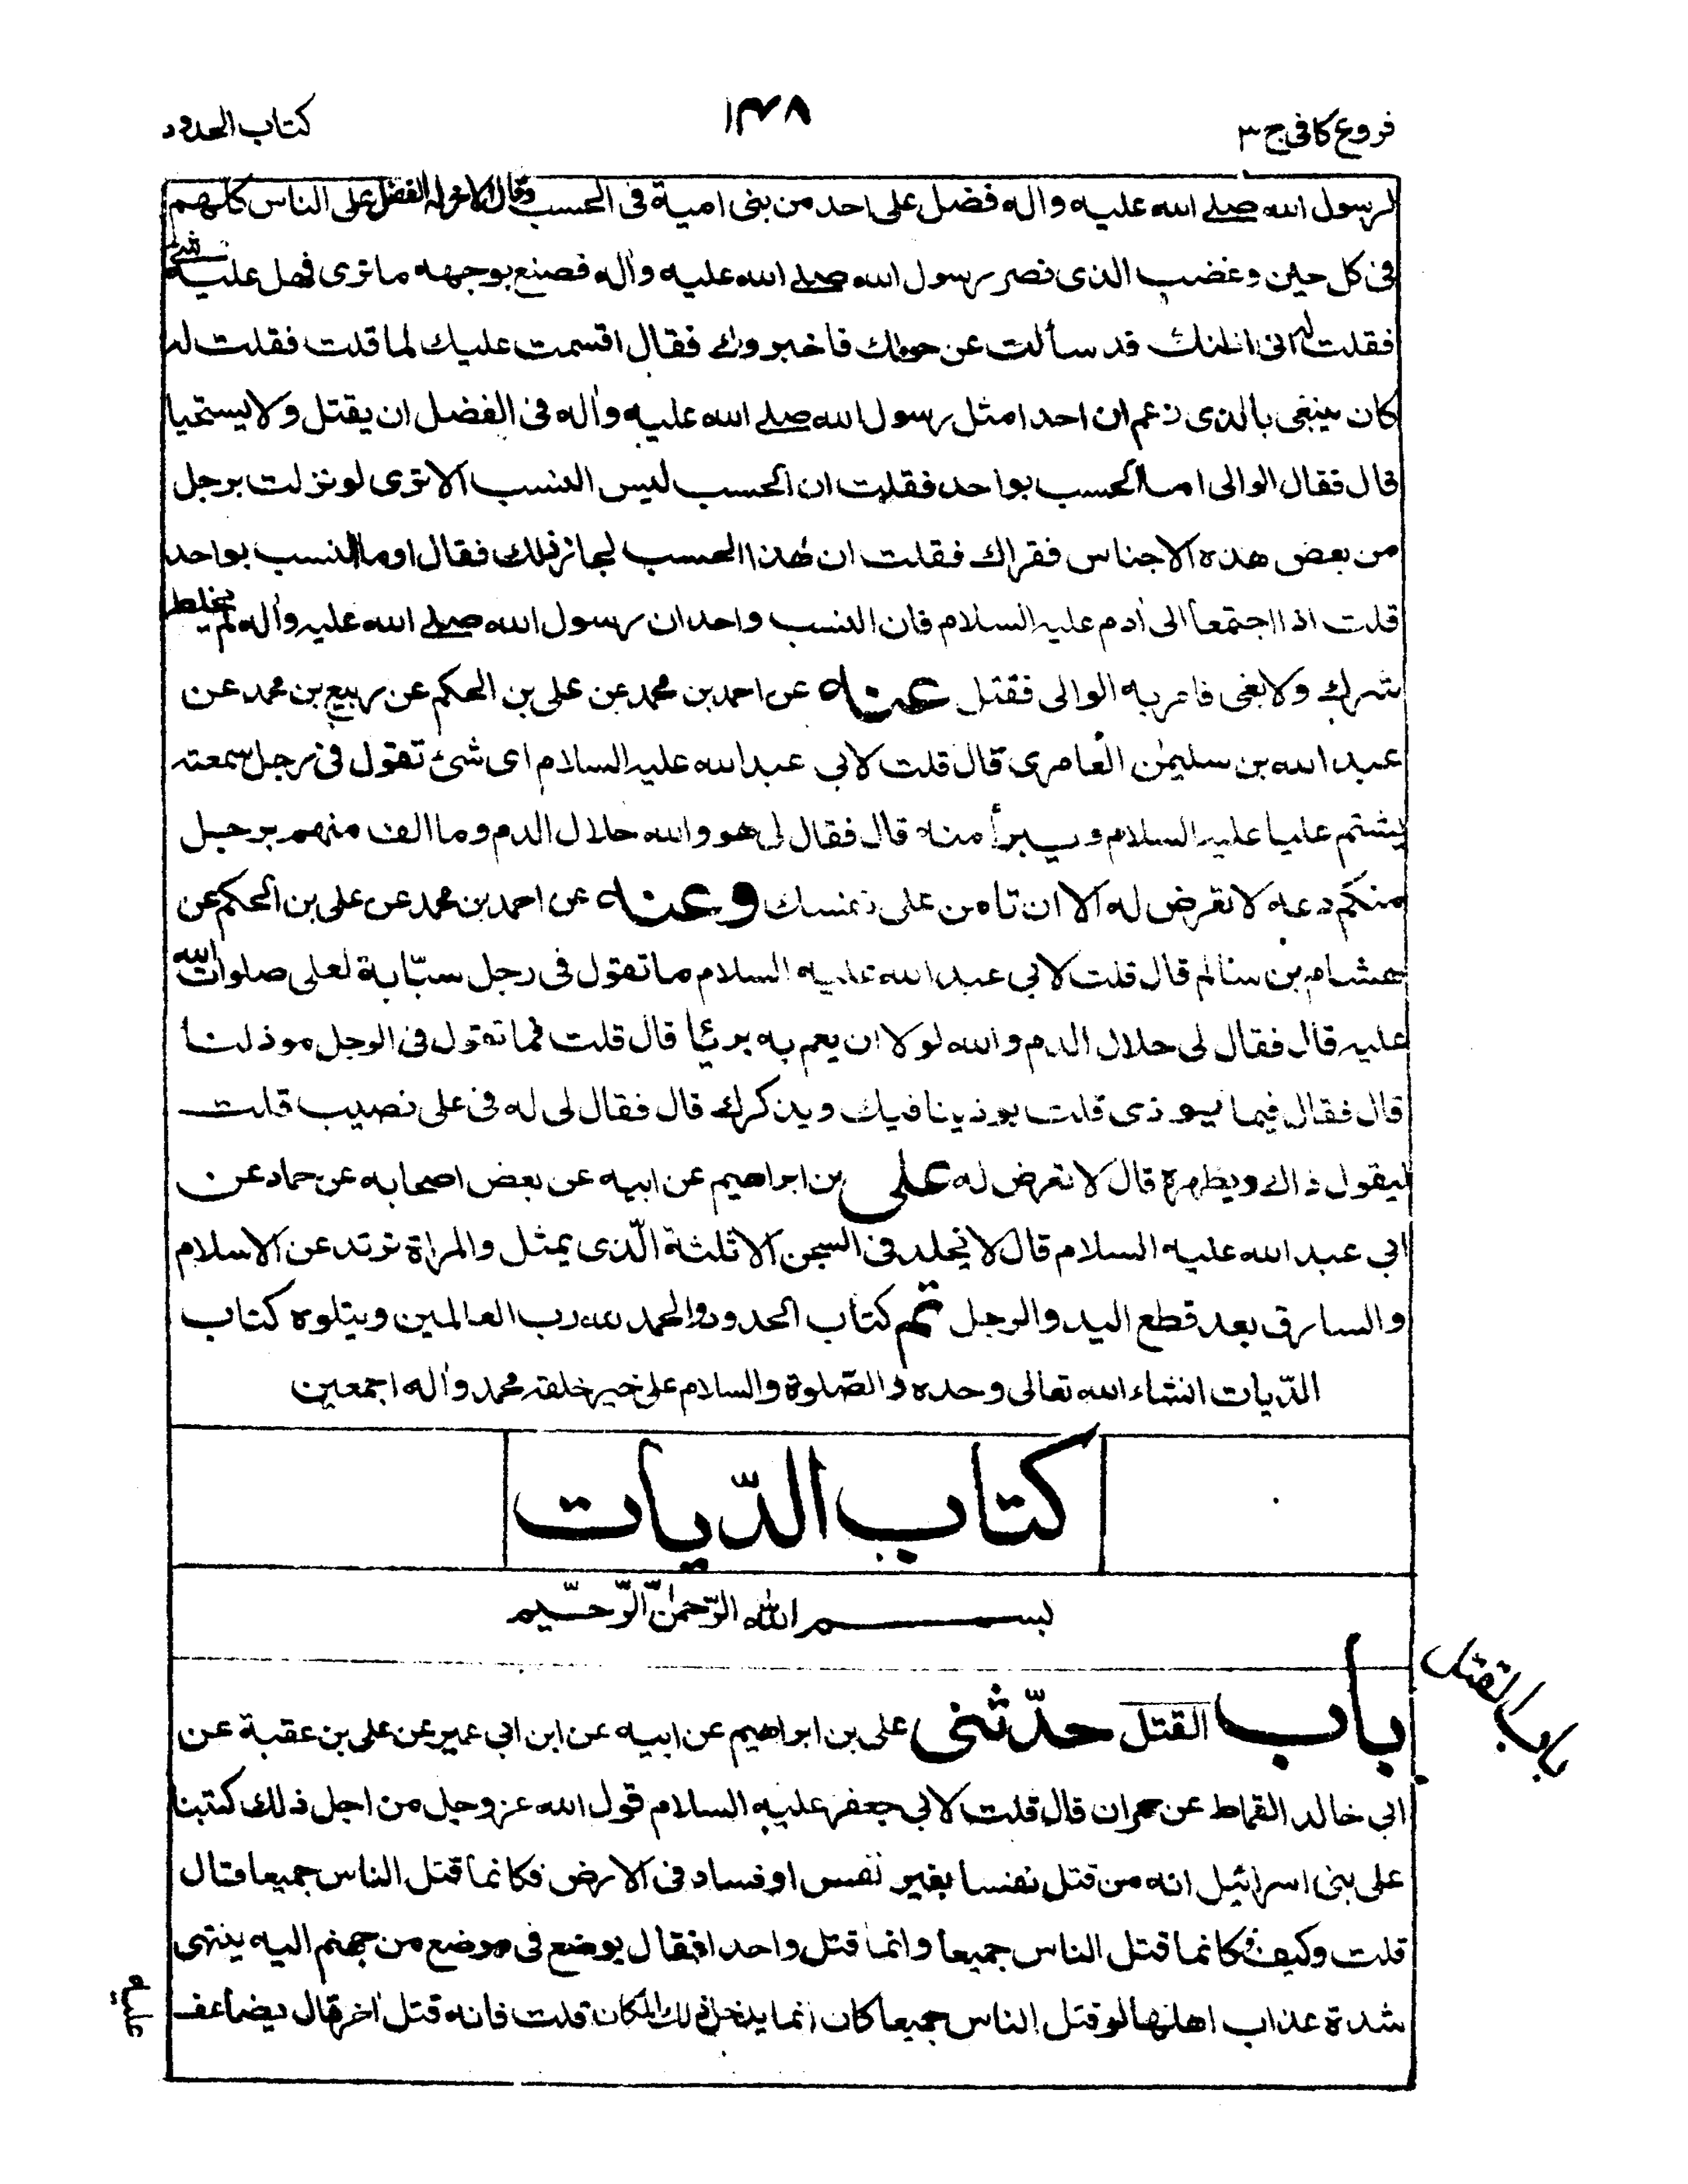 فروع كافى ج ٣
١٣٨
كتاب الحدود
لرسول الله صلے الله عليه واله فضل على احد من بنى امية فى الحسب وقال الاخر له الفضل على الناس كلهم
فى كل حين وغضب الذى نصر رسول الله صلے الله عليه واٰله فصنع بوجهه ما ترى فهل عليه شئ
فقلت له انى اظنك قد سألت عن حولك فاخبروك فقال اقسمت عليك لما قلت فقلت له
كان ينبغى بالذى زعم ان احدا مثل رسول الله صلے الله عليه واٰله فى الفضل ان يقتل ولا يستحيا
قال فقال الوالى اما الحسب بواحد فقلت ان الحسب ليس النسب الا ترى لو نزلت برجل
من بعض هذه الاجناس فقراك فقلت ان هذا الحسب لجاز ذلك فقال اوما النسب بواحد
قلت اذا اجتمعا الى اٰدم عليه السلام فان النسب واحد ان رسول الله صلے الله عليه واٰله لم يخلطه
شرك ولا بغى فامر به الوالى فقتل عنه عن احمد بن محمد عن على بن الحكم عن ربيع بن محمد عن
عبد الله بن سليمٰن العامرى قال قلت لابي عبد الله عليه السلام اى شئ تقول فى رجل سمعته
يشتم عليا عليه السلام ويبرأ منه قال فقال لى هو والله حلال الدم وما الف منهم برجل
منكم دعه لا تعرض له الا ان تامن على نفسك وعنه عن احمد بن محمد عن على بن الحكم عن
هشام بن سالم قال قلت لابي عبد الله عليه السلام ما تقول فى رجل سبّابة لعلى صلوات الله
عليه قال فقال لى حلال الدم والله لولا ان يعم به بريئا قال قلت فما تقول فى الرجل موذ لنا
قال فقال فيما يوذى قلت يوذينا فيك ويذكرك قال فقال لى له فى على نصيب قلت
ليقول ذاك ويظهره قال لا تعرض له على بن ابراهيم عن ابيه عن بعض اصحابه عن حماد عن
ابي عبد الله عليه السلام قال لا يخلد فى السجن الا ثلثة الّذى يمثل والمراة ترتد عن الاسلام
والسارق بعد قطع اليد والرجل تم كتاب الحدود والحمد لله رب العالمين ويتلوه كتاب
الدّيات انشاء الله تعالى وحده والصّلوة والسلام على خير خلقه محمد واٰله اجمعين
كتاب الدّيات
بسم الله الرّحمٰن الرّحيم
باب القتل حدّثنى على بن ابراهيم عن ابيه عن ابن ابي عمير عن على بن عقبة عن
باب القتل
ابي خالد القماط عن حمران قال قلت لابي جعفر عليه السلام قول الله عز وجل من اجل ذلك كتبنا
على بنى اسرائيل انه من قتل نفسا بغير نفس او فساد فى الارض فكانما قتل الناس جميعا قال
قلت وكيف فكانما قتل الناس جميعا وانما قتل واحدا فقال يوضع فى موضع من جهنم اليه ينتهى
شدة عذاب اهلها لو قتل الناس جميعا كان انما يدخل ذلك المكان قلت فانه قتل اخر قال يضاعف
عليه